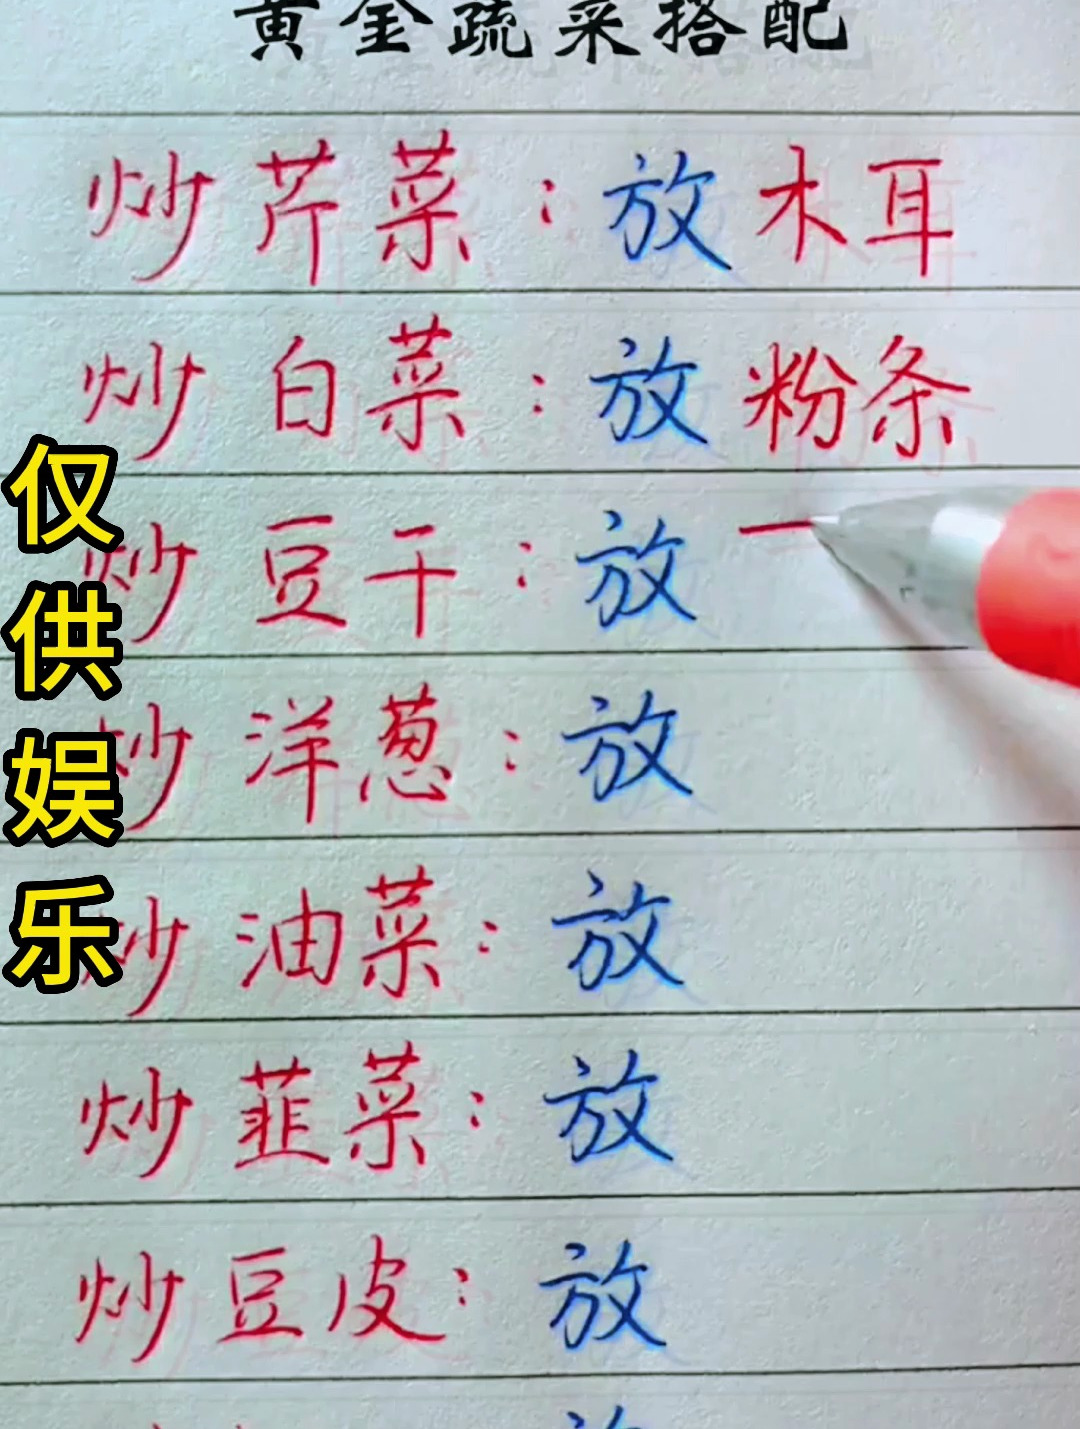 黄金蔬菜搭配
炒芹菜:放木耳
炒白菜:放粉条
炒豆干:放一
炒洋葱:放
炒油菜:放
炒韭菜:放
炒豆皮:放
仅供娱乐